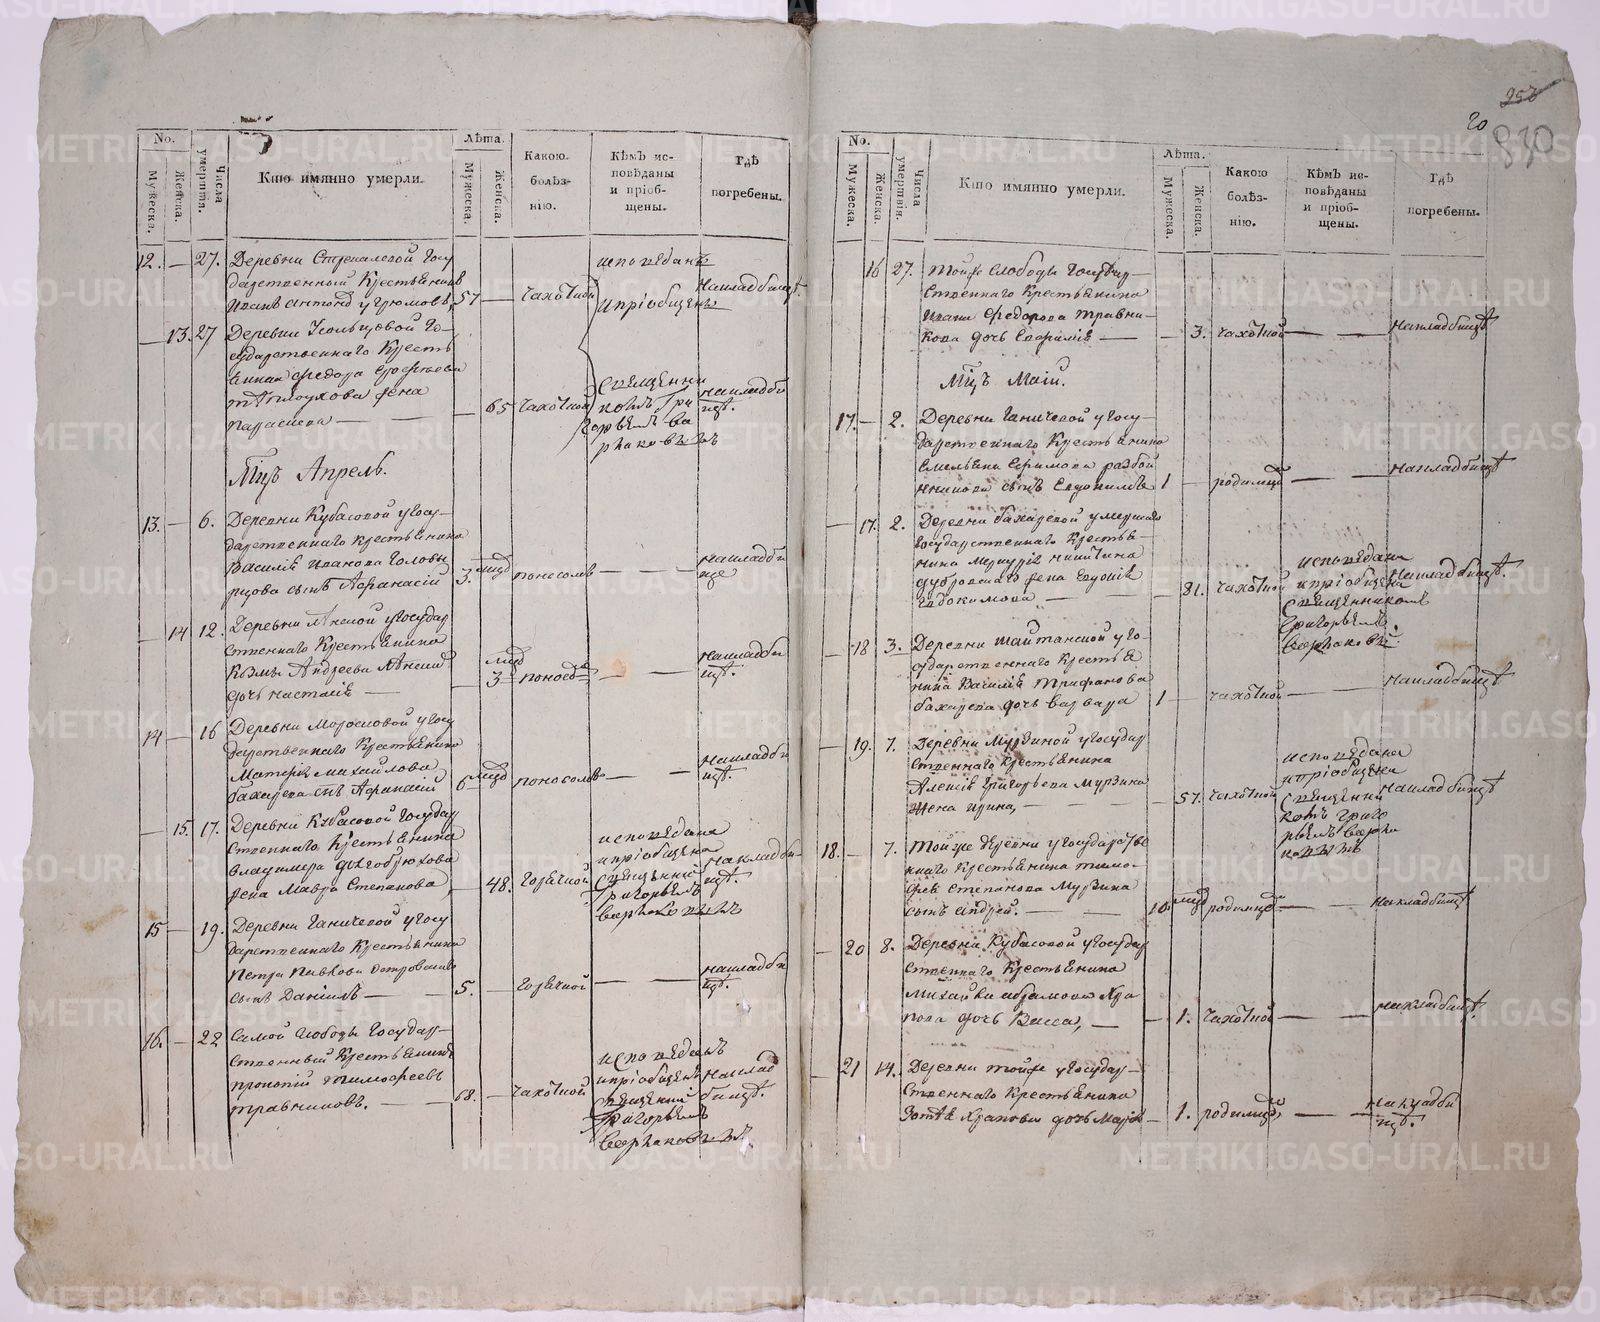 257
20
930
No.
Мужеска.
Женска.
Числа умертвія.
Кто имянно умерли.
Лѣта.
Мужеска.
Женска.
Какою болѣз-
нію.
Кѣмъ ис-
повѣданы
и пріоб-
щены.
Гдѣ
погребены.
12. — 27. Деревни Стрекаловой Госу
дарственный Крестьянинъ
Иванъ Антоновъ Угрюмовъ, 57 — чахоткой
исповѣданъ
и пріобщенъ
на кладбищѣ.
— 13. 27 Деревни Усольцовой Го-
сударственнаго Кресть
янина Федора Ерофѣева
жена
Парасковья — — 65 чахоткой
Священни
комъ Гри
горьемъ Ве
рхаковымъ
на кладби
щѣ.
Мцъ Апрель.
13. — 6. Деревни Кубасовой у Госу-
дарственнаго крестьянина
Василья Иванова Головы
рцова сынъ Афанасій
3. мцд поносомъ — —
на кладби
ще
— 14 12. Деревни у Государ
ственнаго Крестьянина
Козмы Андреева
дочь Наталія —
мцд
3 поносомъ — —
на кладби
щѣ.
14 — 16 Деревни Моросковой у Госу
дарственнаго Крестьянина
Матвѣя Михайлова
Бахарева сынъ Афанасій
6 мцд поносомъ — —
на кладби
щѣ.
— 15. 17. Деревни Кубасовой Государ
ственнаго Крестьянина
Владимера Долгобрюхова
жена Мавра Степанова, — 48. горячкой
исповѣдана
и пріобщена
Священник
Григорьемъ
Верхаковымъ
на кладби-
щѣ.
15 — 19. Деревни Ганичевой у Госу
дарственнаго Крестьянина
Петра Островскаго
сынъ Даніилъ — — 5. — горячкой — —
на кладби
щѣ.
16. — 22 Самой Слободы Государ-
ственный Крестьянинъ
Прокопій Тимофеевъ
Травниковъ. — — 68. — чахоткой
исповѣданъ
и пріобщенъ
Священник
Григорьемъ
Верхаковымъ.
на клад
бищѣ.
No.
Мужеска.
Женска.
Числа умертвія.
Кто имянно умерли.
Лѣта.
Мужеска.
Женска.
Какою
болѣз-
нію.
Кѣмъ ис-
повѣданы
и пріоб-
щены.
Гдѣ
погребены.
16 27. Той же Слободы Государ-
ственнаго Крестьянина
Ивана Федорова Травни-
кова дочь Евфимія — — 3. чахоткой — — на кладбищѣ
Мцъ Маій.
17. — 2. Деревни Ганичевой у Госу-
дарственнаго Крестьянина
Емельяна Ефимова Разбой
никова сынъ Евдокимъ 1 — родимцѣ — — на кладбищѣ
— 17. 2. Деревни Бахаревой умершаго
Государственнаго Крестья-
нина Меркурія Никитина
Дубровскаго жена Евдокія
Евдокимова — — 81. чахоткой
исповѣдана
и пріобщена
Священникомъ
Григорьемъ
Верхаковы
на кладбищѣ.
— 18 3. Деревни Шайтанской у Го-
сударственнаго Крестья
нина Василія Трифанова
Бахарева дочь Варвара 1 — чахоткой — — на кладбищѣ
— 19. 7. Деревни Мурзиной у Государ
ственнаго Крестьянина
Алексія Григорьева Мурзина
жена Ирина, — — 57. чахоткой
исповѣдана
и пріобщена
Священни
комъ Григо
рьемъ Верха
ковымъ
на кладбищѣ
18. — 7. Той же деревни у Государстве
ннаго Крестьянина Тимо-
фея Степанова Мурзина
сынъ Андрей. — — 10. мцд родимцѣ — — на кладбищѣ
— 20 8. Деревни Кубасовой у Государ
ственнаго Крестьянина
Михайла Абрамова Хра
пова дочь Васса, — — 1. чахоткой — — на кладбищѣ.
— 21 14. Деревни той же у Государ-
ственнаго Крестьянина
Зотѣя Храпова дочь Марія — 1. родимцѣ, — —
на кладби
щѣ.
METRIKI.GASO-URAL.RU